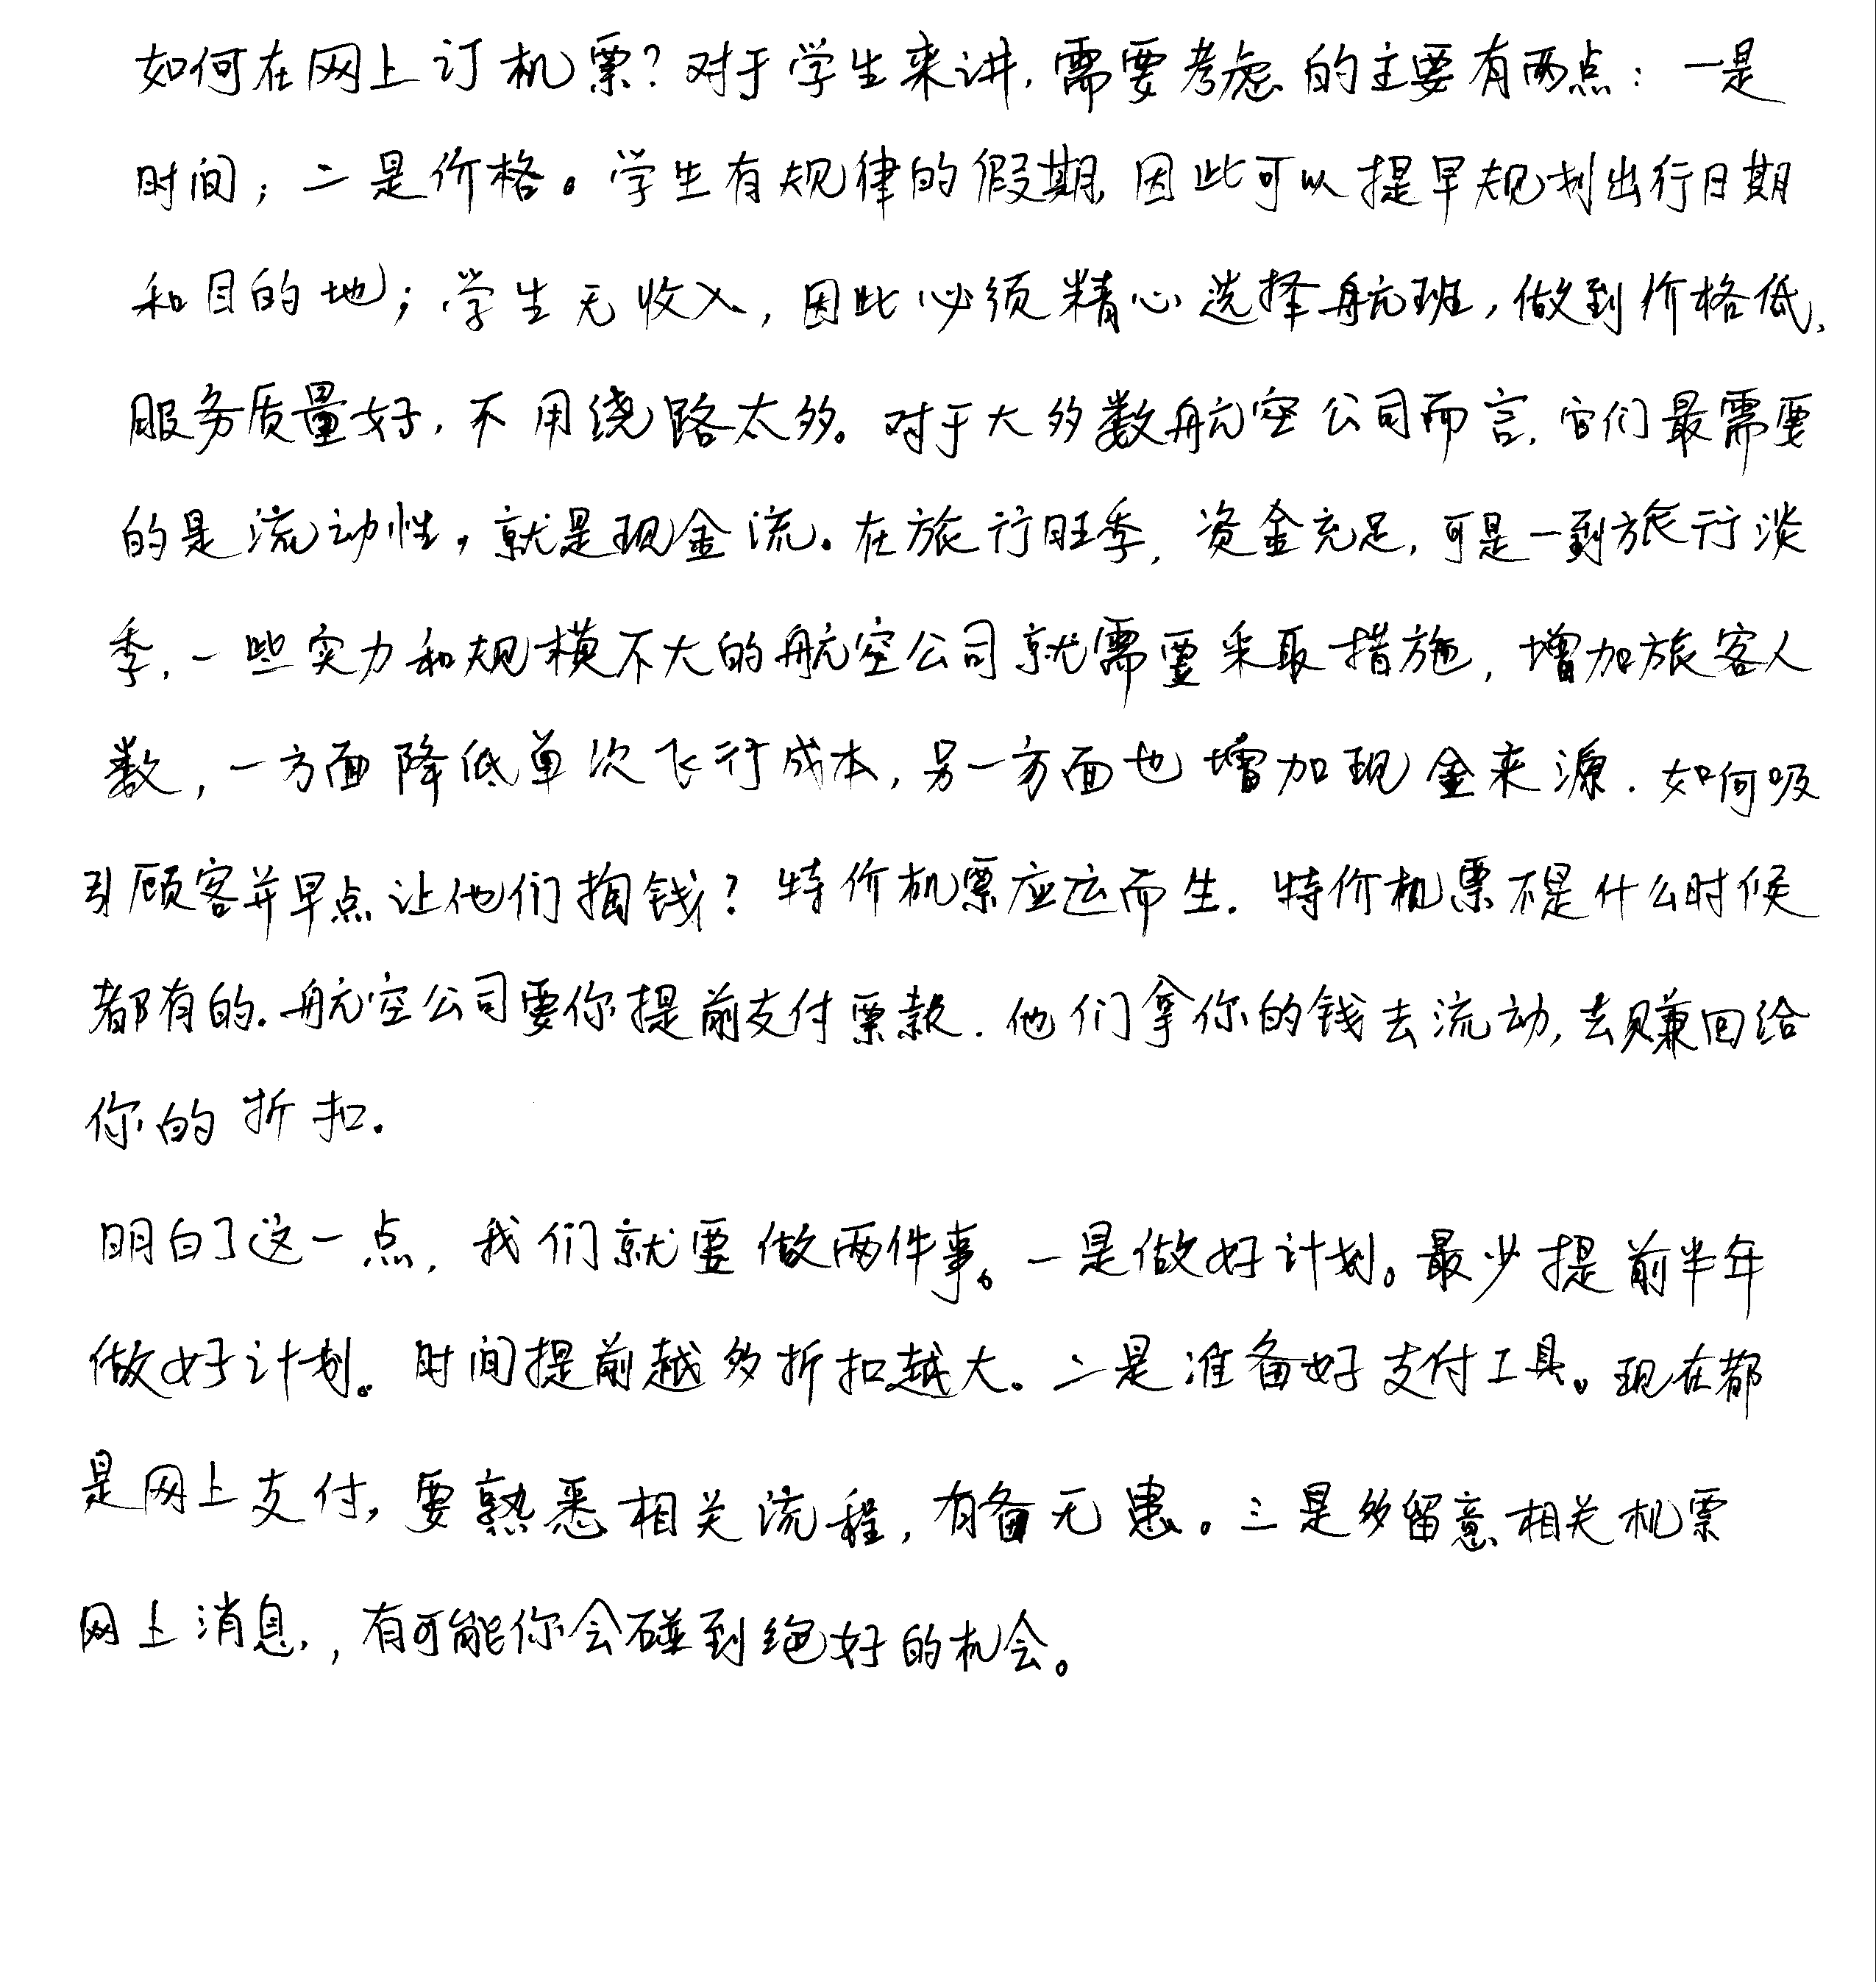 如何在网上订机票？对于学生来讲，需要考虑的主要有两点：一是
时间；二是价格。学生有规律的假期，因此可以提早规划出行日期
和目的地；学生无收入，因此必须精心选择航班，做到价格低、
服务质量好，不用绕路太多。对于大多数航空公司而言，它们最需要
的是流动性，就是现金流。在旅行旺季，资金充足，可是一到旅行淡
季，一些实力和规模不大的航空公司就需要采取措施，增加旅客人
数，一方面降低单次飞行成本，另一方面也增加现金来源．如何吸
引顾客并早点让他们掏钱？特价机票应运而生．特价机票不是什么时候
都有的．航空公司要你提前支付票款．他们拿你的钱去流动，去赚回给
你的折扣．
明白了这一点，我们就要做两件事。一是做好计划。最少提前半年
做好计划。时间提前越多折扣越大。二是准备好支付工具。现在都
是网上支付，要熟悉相关流程，有备无患。三是多留意相关机票
网上消息，，有可能你会碰到绝好的机会。